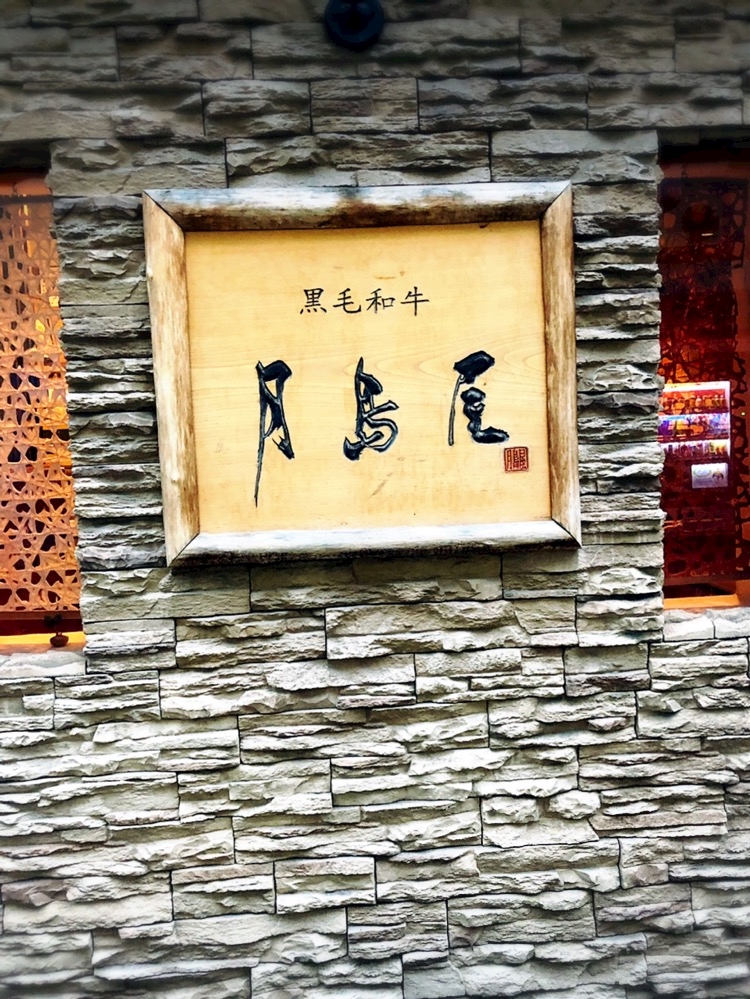 黒毛和牛
月島屋